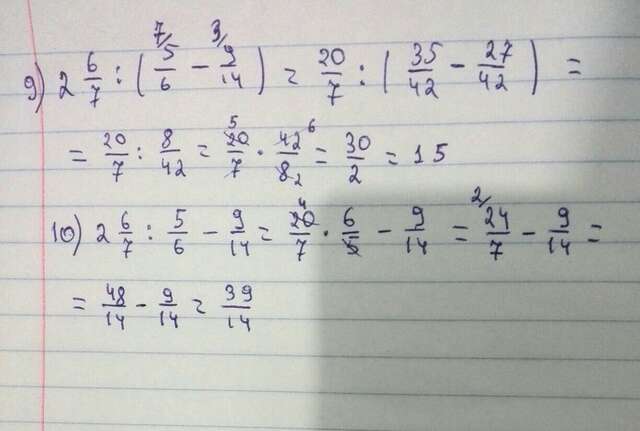 9) 2 6/7 : ( ⁷⁄5/6 − ³⁄9/14 ) = 20/7 : ( 35/42 − 27/42 ) =
= 20/7 : 8/42 = ⁵20/7 · 42⁶/8₂ = 30/2 = 15
10) 2 6/7 : 5/6 − 9/14 = ⁴20/7 · 6/5 − 9/14 = ²⁄24/7 − 9/14 =
= 48/14 − 9/14 = 39/14